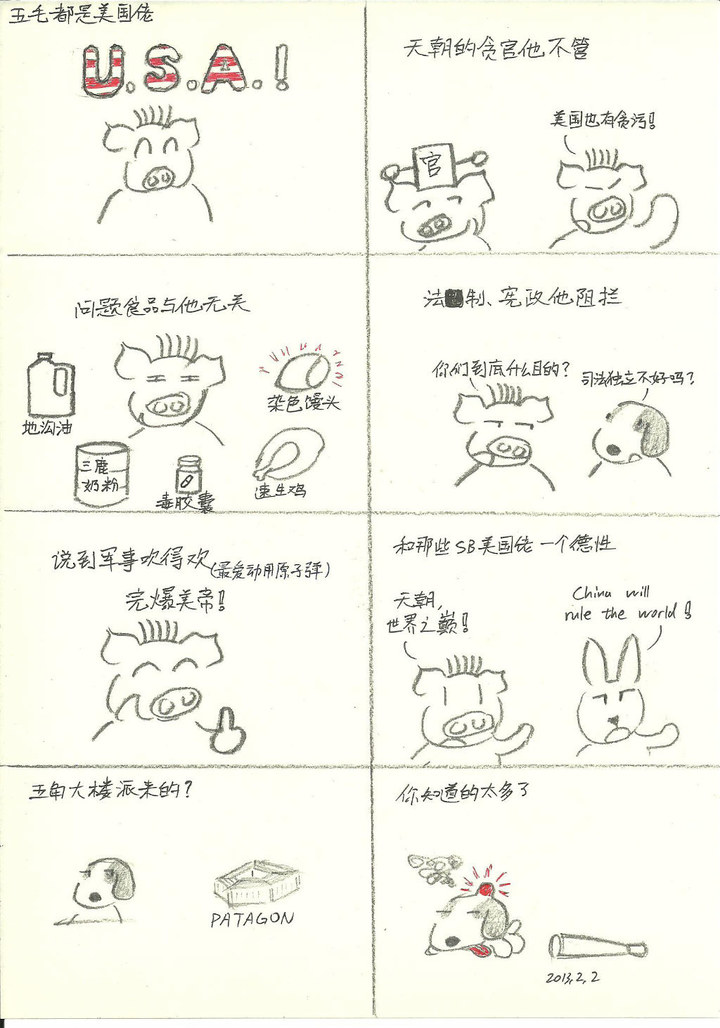 五毛都是美国佬
U.S.A.!
天朝的贪官他不管
官
美国也有贪污!
问题食品与他无关
地沟油
三鹿
奶粉
毒胶囊
染色馒头
速生鸡
法制、宪政他阻拦
你们到底什么目的?
司法独立不好吗?
说到军事吹得欢(最爱动用原子弹)
完爆美帝!
和那些SB美国佬一个德性
天朝,
世界之巅!
China will
rule the world!
五角大楼派来的?
PATAGON
你知道的太多了
2013,2,2